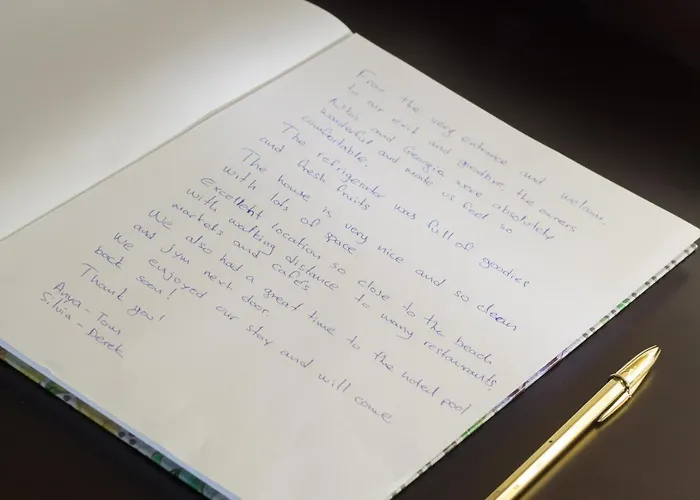 From the very entrance and welcom.
to our exit and goodbye the owners
and Georgia were absolutely
wonderful and made us feel so
comfortable.
The refrigerator was full of goodies
and fresh fruits
The house is very nice and so clean
with lots of space
Excellent location so close to the beach
with walking distance to many restaurants,
markets and cafés
We also had a great time to the hotel pool
and jym next door.
We enjoyed our stay and will come
back soon!
Thank you!
Anya - Tom
Silvia - Derek